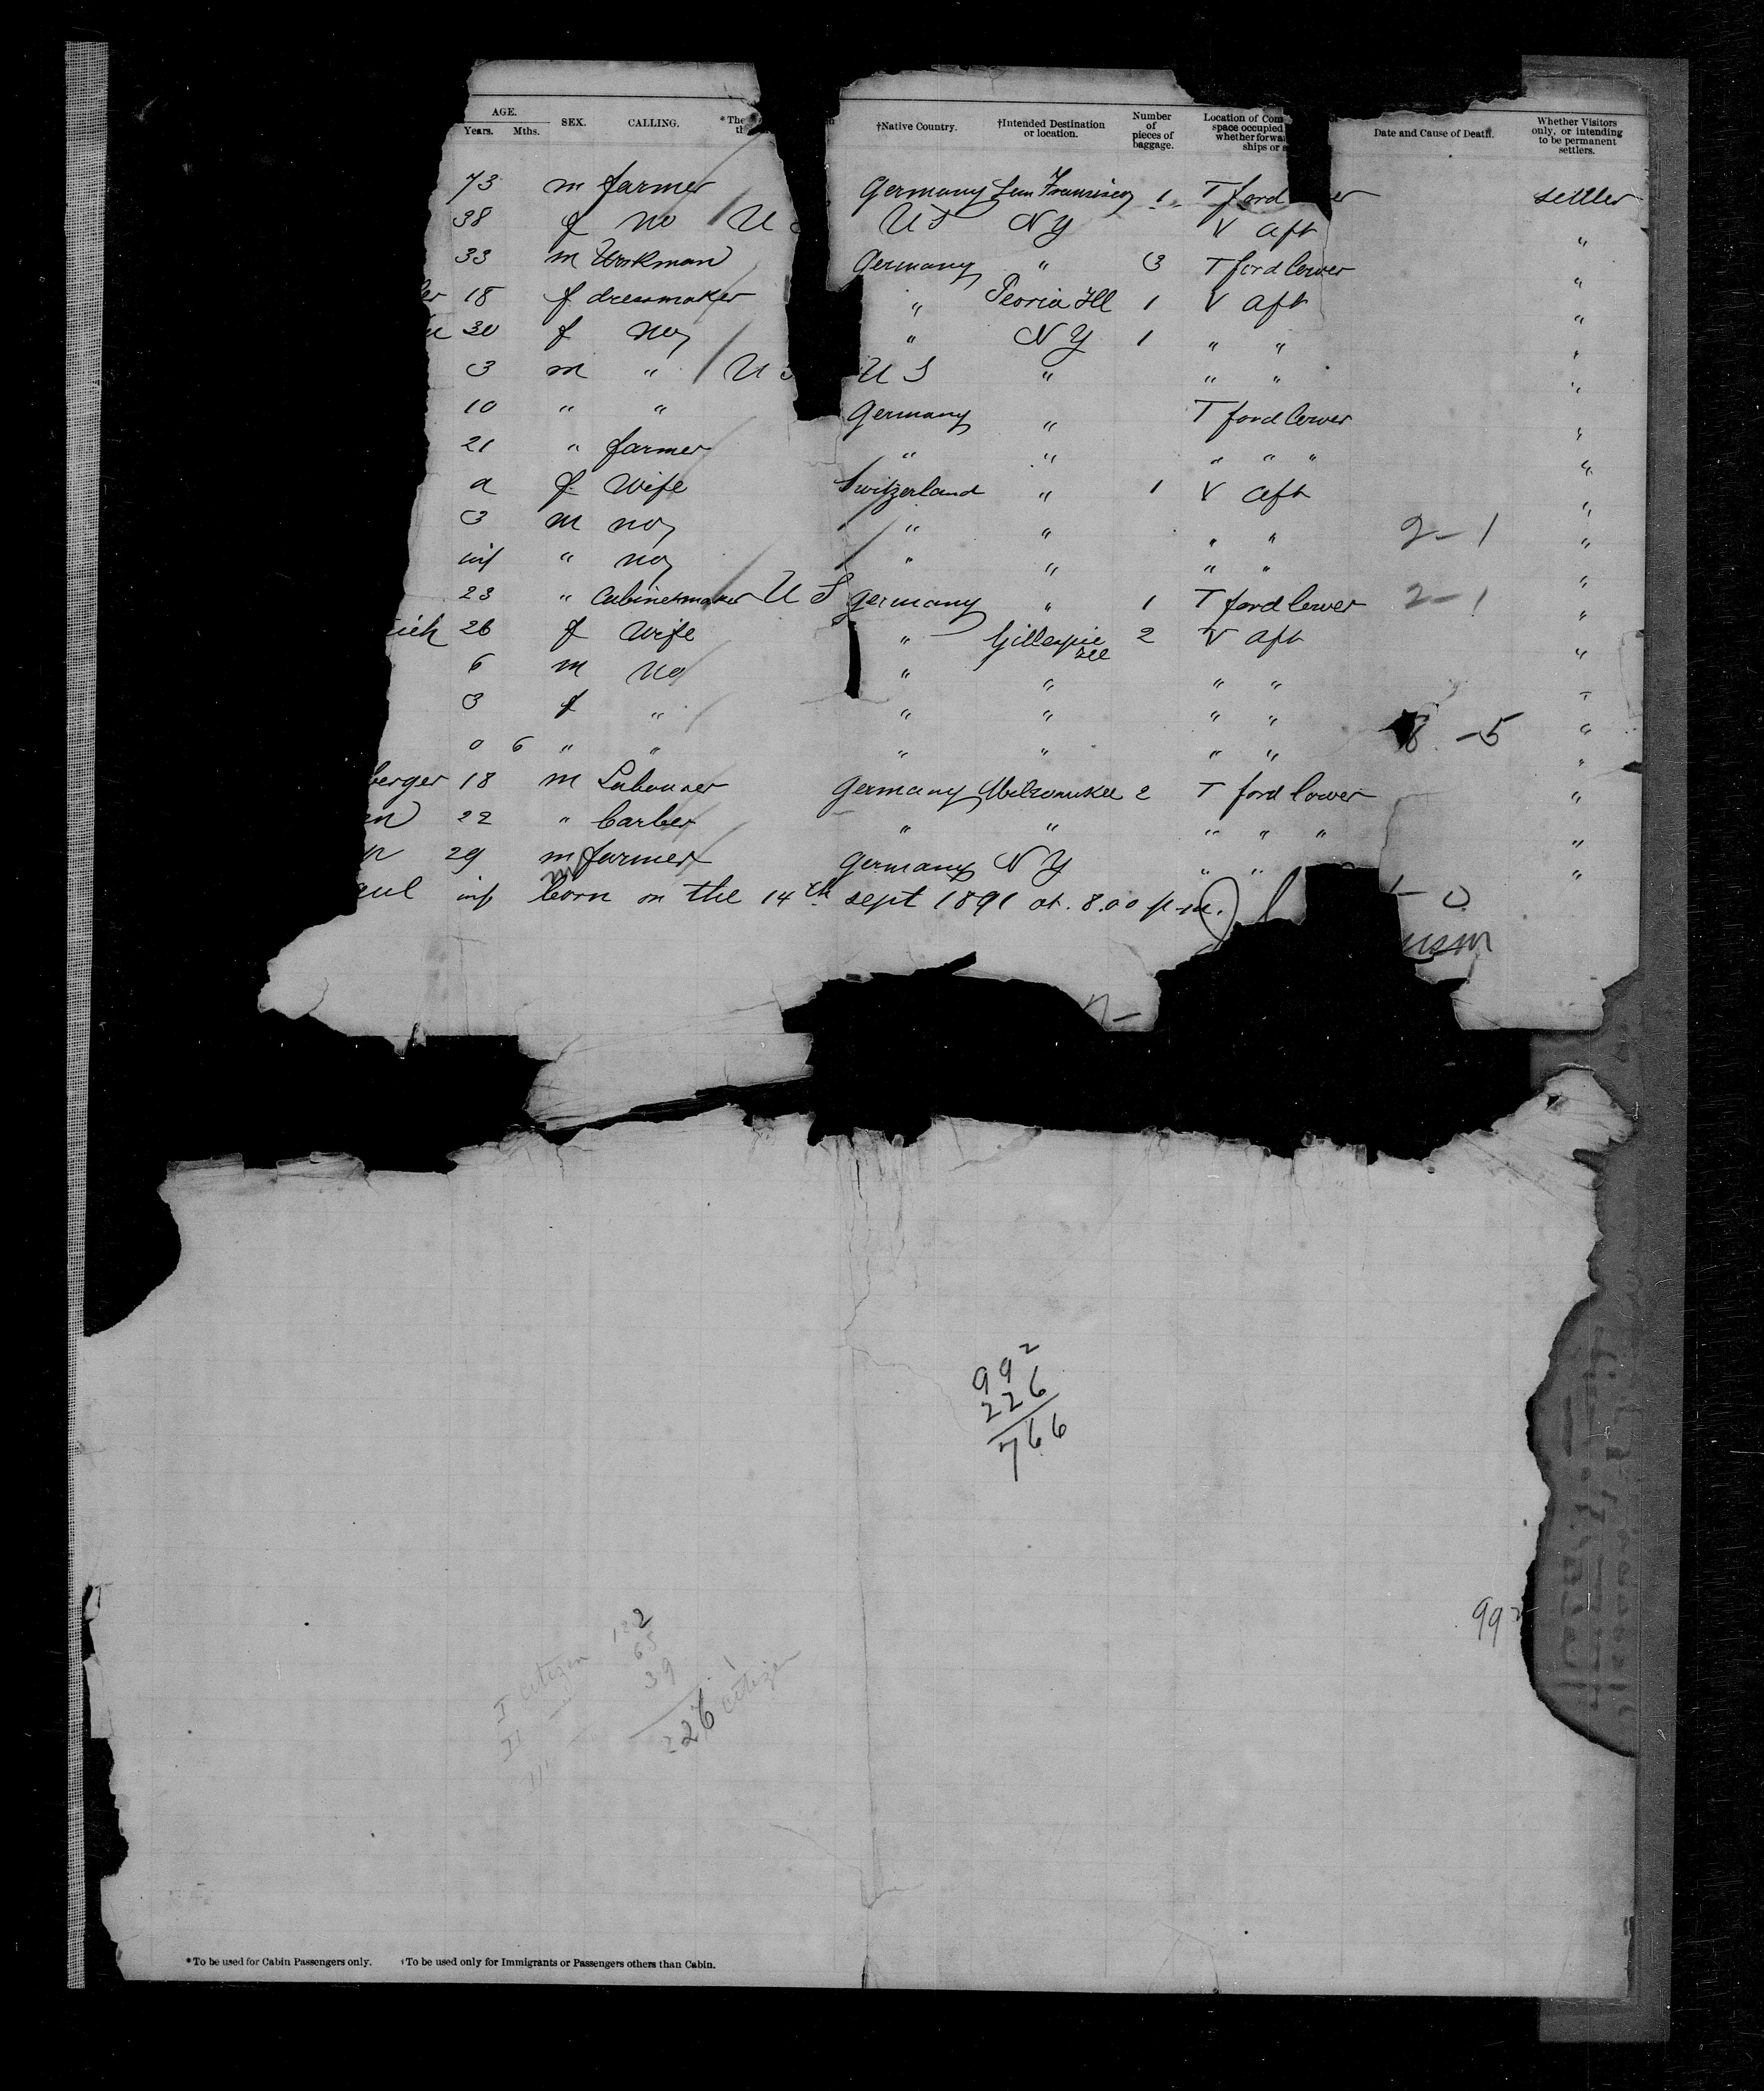 AGE.
Years. Mths. SEX. CALLING. *The †Native Country. †Intended Destination or location. Number of pieces of baggage. Location of Com space occupied whether forwa ships or a Date and Cause of Death. Whether Visitors only, or intending to be permanent settlers.
73 m farmer Germany San Francisco 1 T ford er settler
38 f no U S U S N Y V aft "
33 m Workman Germany " 3 T ford lower "
er 18 f dressmaker " Peoria Ill 1 V aft "
30 f no " N Y 1 " " "
3 m " U S U S " " " "
10 " " Germany " T ford lower "
21 " farmer " " " " " "
a f Wife Switzerland " 1 V aft "
3 m no " " " " 2-1 "
inf " no " " " " "
23 " Cabinetmaker U S Germany " 1 T ford lower 2-1 "
ich 26 f Wife " Gillespie Ill 2 V aft "
6 m No " " " " "
3 f " " " " " -5 "
0 6 " " " " " " "
berger 18 m Labourer Germany Milwaukee 2 T ford lower "
en 22 " barber " " " " " "
29 m farmer Germany N Y " " "
aul inf born on the 14th sept 1891 at 8.00 p.m.
992
226
766
992
122
I citizen 65
II — 39
III — 226 citizen
*To be used for Cabin Passengers only. †To be used only for Immigrants or Passengers others than Cabin.